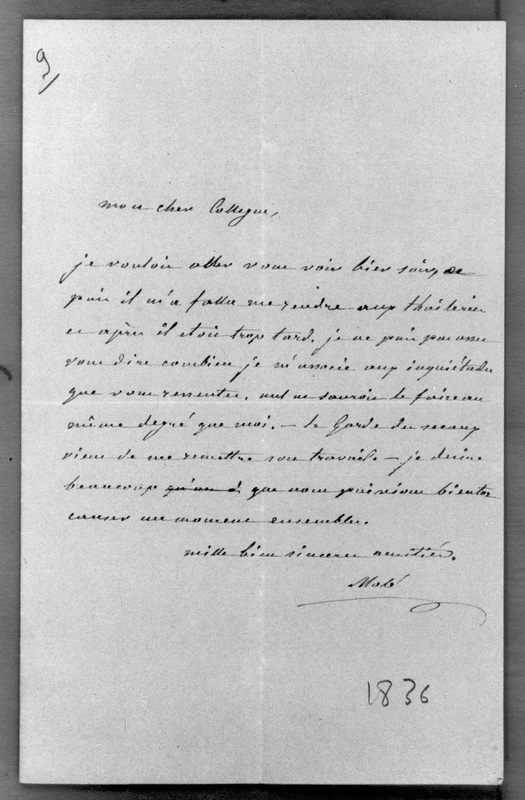 9)
mon cher Collegue,
je voulois aller vous voir hier soir, et
puis il m'a fallu me rendre aux thuileries
et après il etoit trop tard. je ne puis pas assez
vous dire combien je m'associe aux inquiétudes
que vous ressentez, nul ne sauroit le faire au
même degré que moi. – le Garde des sceaux
vient de me remettre son travail – je desire
beaucoup que nous puissions bientot
causer un moment ensemble.
mille bien sinceres amitiés.
Molé
1836